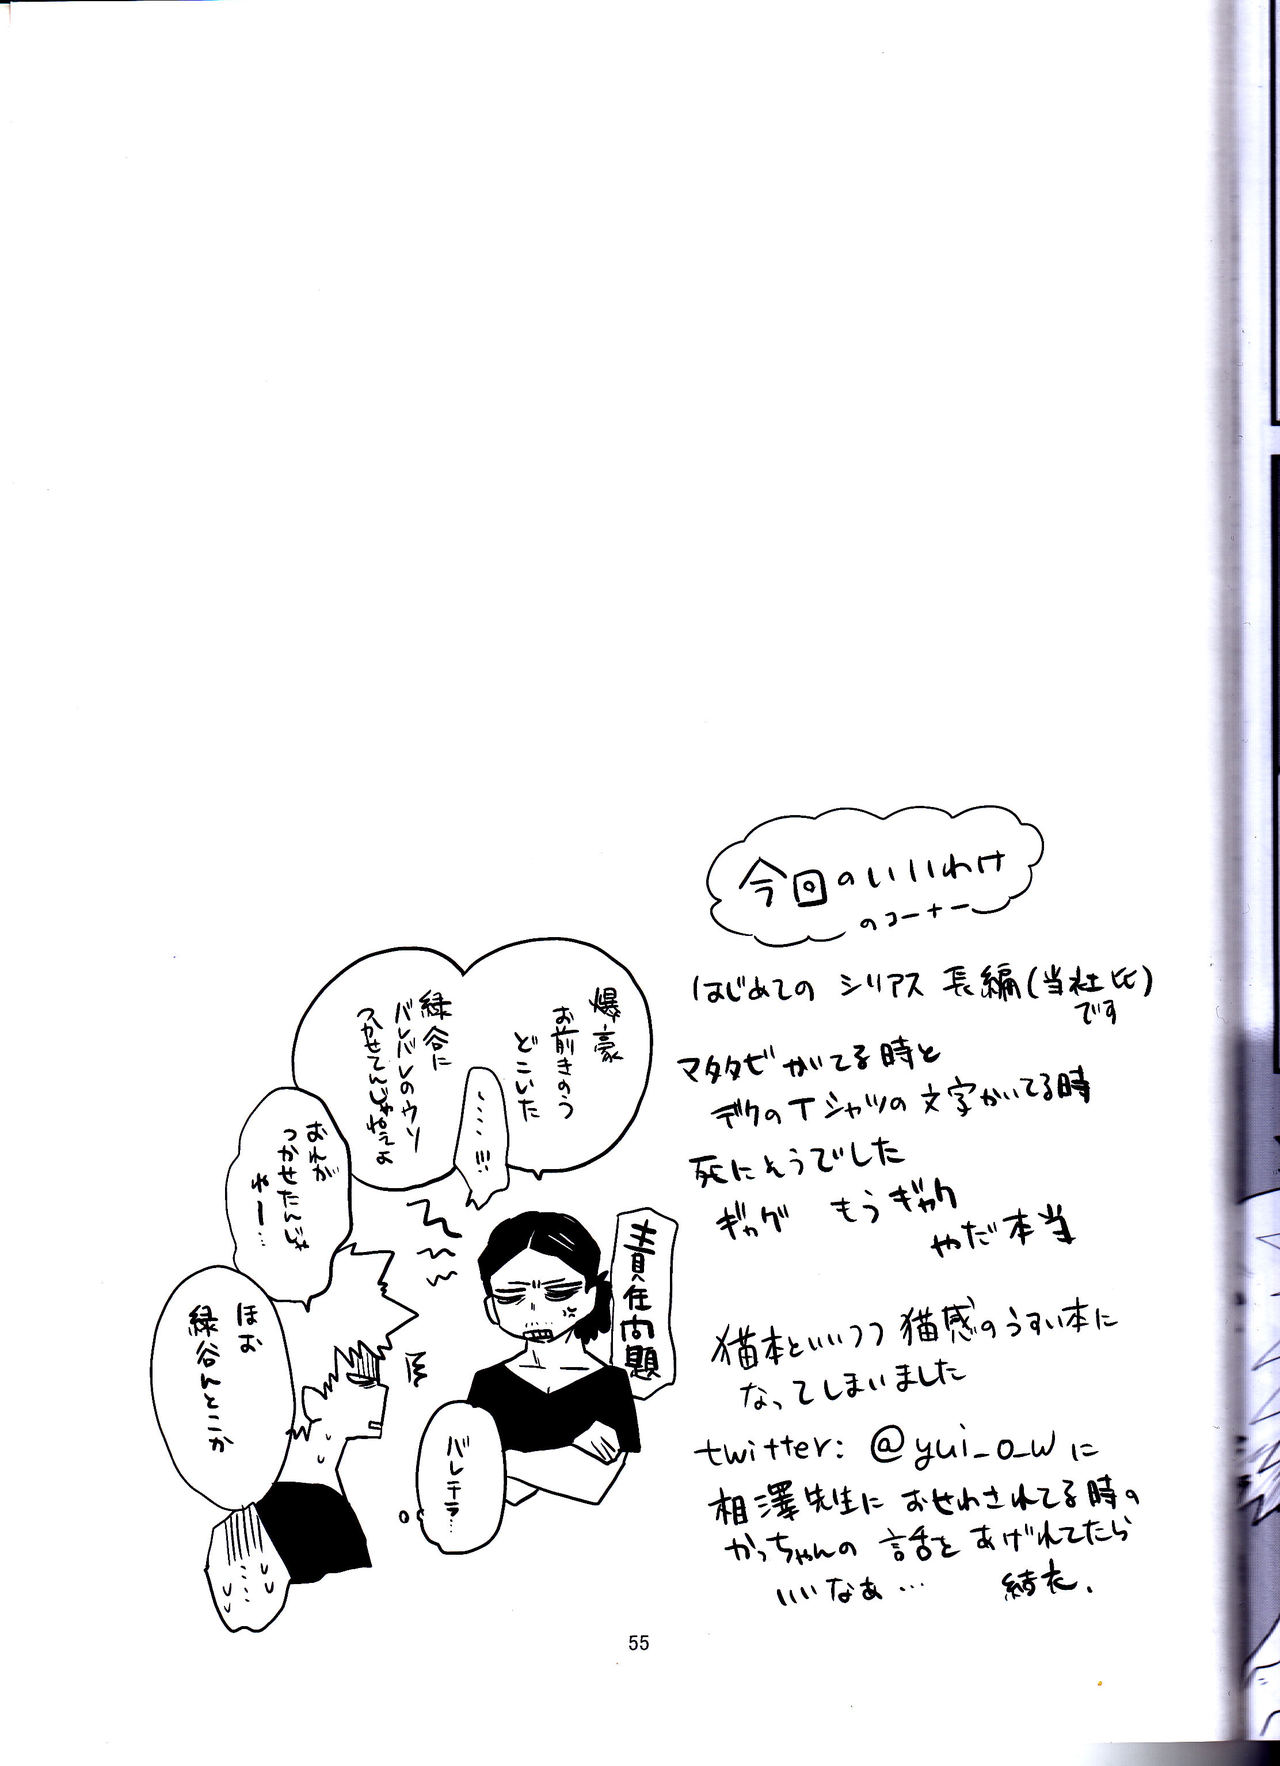 今回のいいわけ
のコーナー
はじめての シリアス 長編(当社比)
です
マタタビがてる時と
デクのTシャツの文字かいてる時
死にそうでした
ギャグ もうギャグ
やだ本当
猫本といいつつ 猫感のうすい本に
なってしまいました
twitter: @yui_o_wに
相澤先生に おせわされてる時の
かっちゃんの 話を あげれてたら
いいなぁ… 結衣.
爆豪
お前きのう
どこいた
....!!!
緑谷に
バレバレのウソ
つかせてんじゃねぇよ
おれが
つかせたんじゃ
ねー…
責任問題
ほお
緑谷んとこか
バレテラ…
...
55